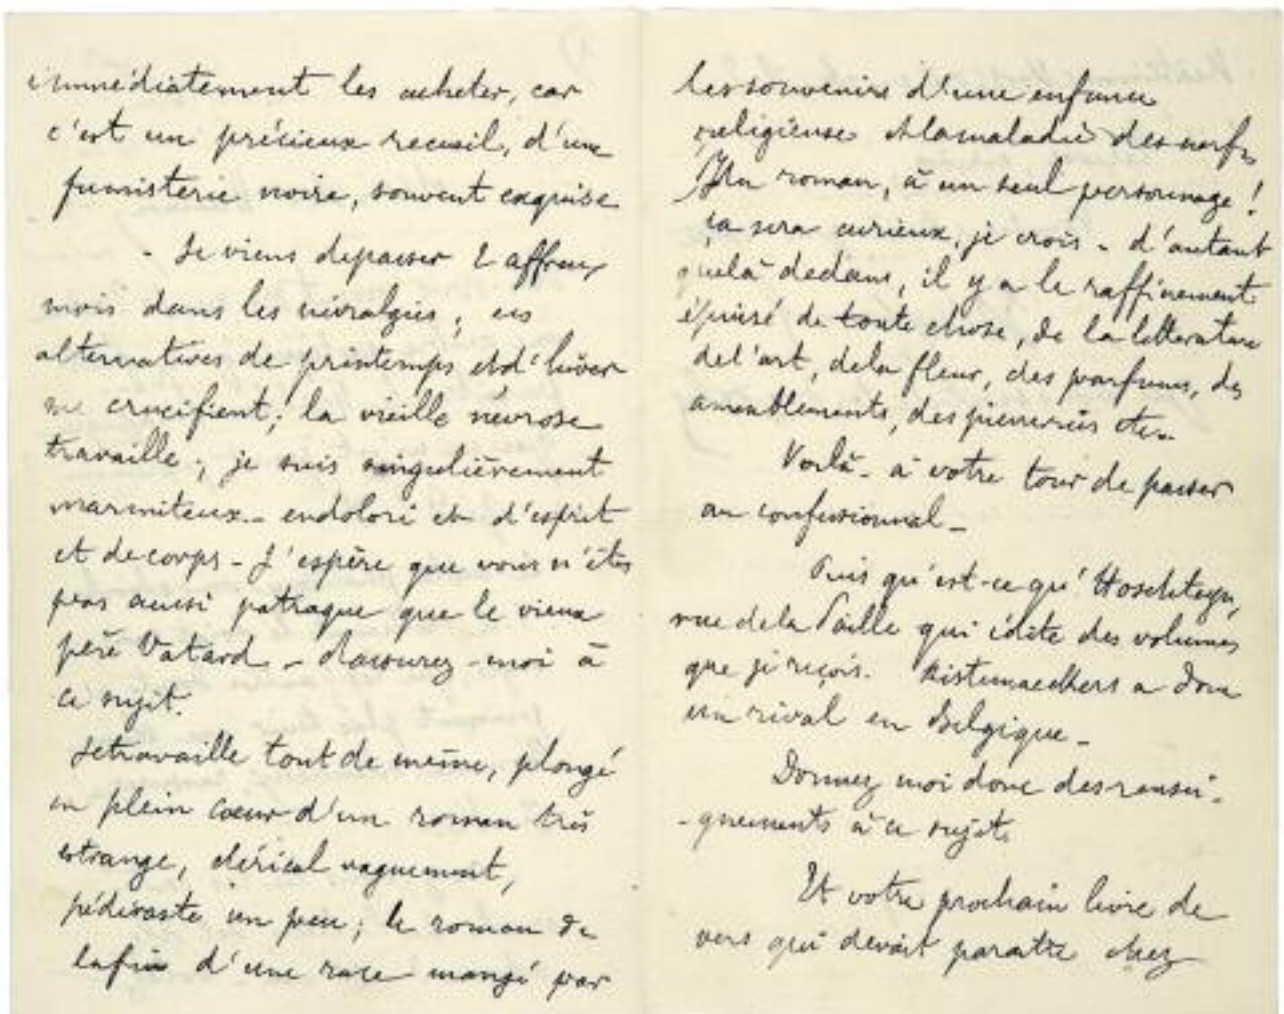 immédiatement les acheter, car
c'est un précieux recueil, d'une
fumisterie noire, souvent exquise
- Je viens de passer 2 affreux
mois dans les névralgies ; ces
alternatives de printemps et d'hiver
me crucifient ; la vieille névrose
travaille ; je suis singulièrement
marmiteux - endolori et d'esprit
et de corps - J'espère que vous n'êtes
pas aussi patraque que le vieux
père Vatard - rassurez-moi à
ce sujet.
Je travaille tout de même, plongé
en plein coeur d'un roman très
étrange, clérical vaguement,
pédéraste un peu ; le roman de
la fin d'une race mangé par
les souvenirs d'une enfance
religieuse et la maladie des nerfs
Un roman, à un seul personnage !
ça sera curieux, je crois - d'autant
que là dedans, il y a le raffinement
épuisé de toute chose, de la littérature
de l'art, de la fleur, des parfums, des
ameublements, des pierreries etc..
Voilà - à votre tour de passer
au confessionnal -
Puis qu'est-ce qu'
rue de la Paille qui édite des volumes
que je reçois. Kistemaeckers a donc
un rival en Belgique -
Donnez moi donc des rensei-
-gnements à ce sujet.
Et votre prochain livre de
vers qui devait paraître chez